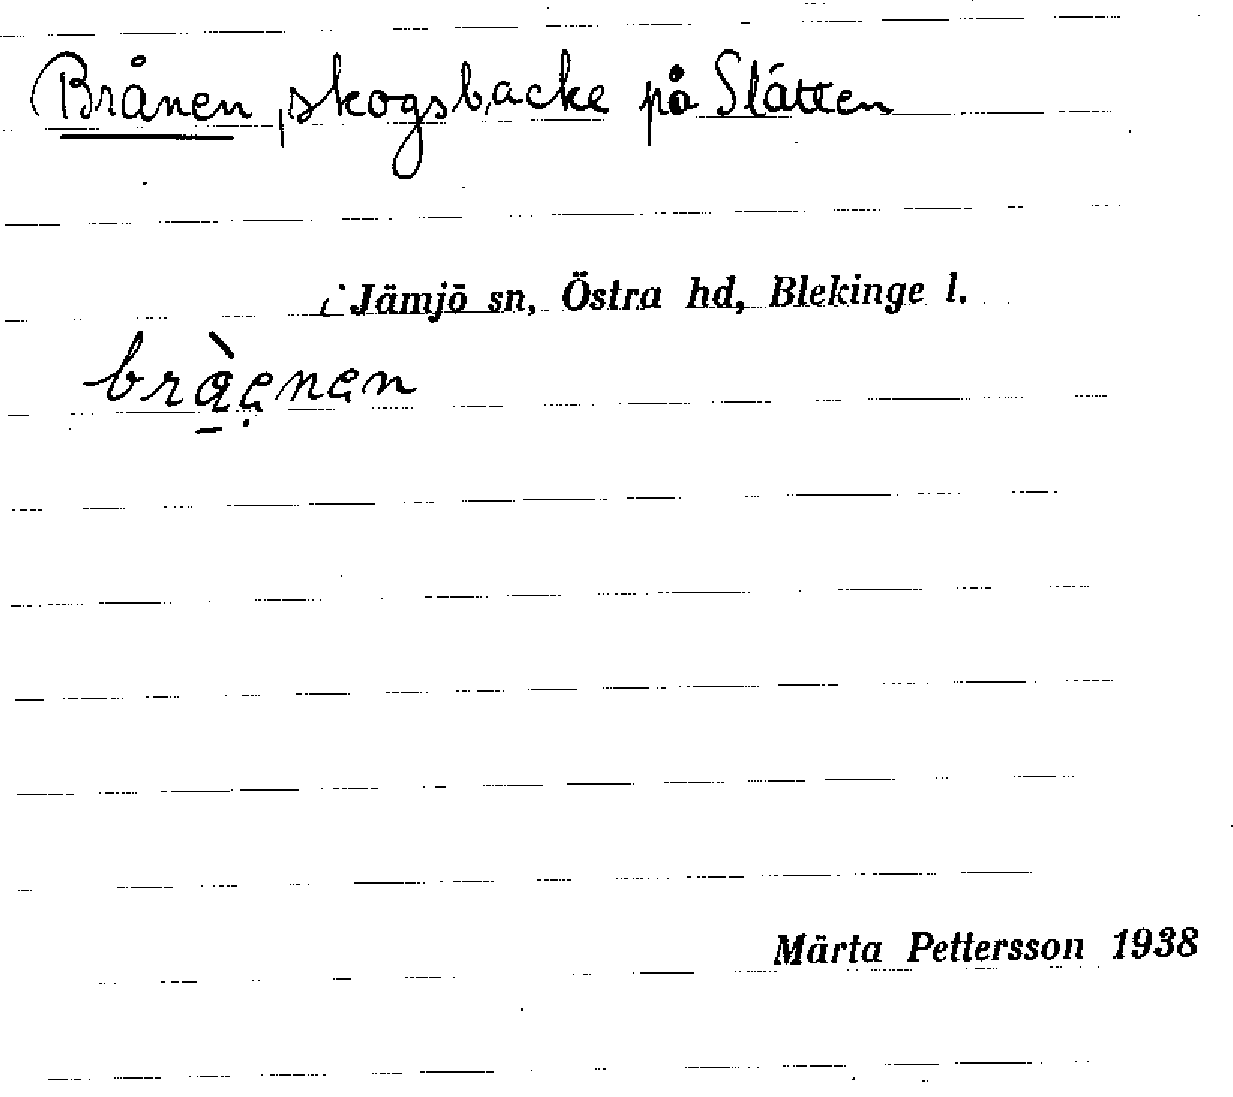 Brånen, skogsbacke på Slätten
i Jämjö sn, Östra hd, Blekinge l.
bràenen
Märta Pettersson 1938